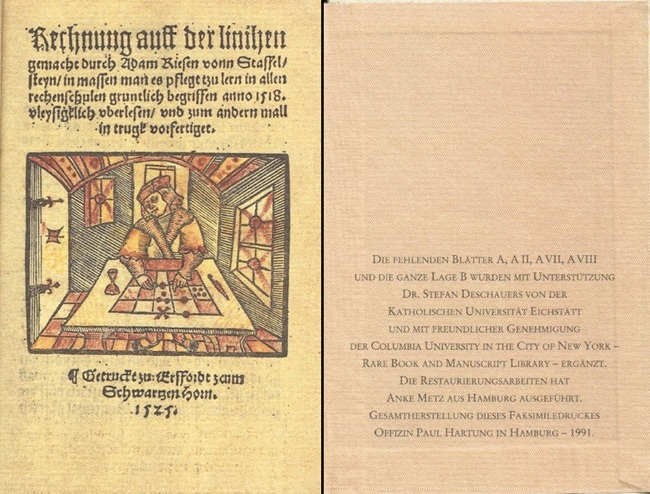 Rechnung auff der linihen
gemacht durch Adam Riesen vonn Staffel/
steyn/ in massen man es pflegt tzu lern in allen
rechenschulen gruntlich begriffen anno 1518.
vleysigklich vberlesen/ vnd zum andern mall
in trugk vorfertiget.
¶ Getruckt zu Erffordt zum
Schwartzen Horn.
1525.
DIE FEHLENDEN BLÄTTER A, A II, A VII, A VIII
UND DIE GANZE LAGE B WURDEN MIT UNTERSTÜTZUNG
DR. STEFAN DESCHAUERS VON DER
KATHOLISCHEN UNIVERSITÄT EICHSTÄTT
UND MIT FREUNDLICHER GENEHMIGUNG
DER COLUMBIA UNIVERSITY IN THE CITY OF NEW YORK –
RARE BOOK AND MANUSCRIPT LIBRARY – ERGÄNZT.
DIE RESTAURIERUNGSARBEITEN HAT
ANKE METZ AUS HAMBURG AUSGEFÜHRT.
GESAMTHERSTELLUNG DIESES FAKSIMILEDRUCKES
OFFIZIN PAUL HARTUNG IN HAMBURG – 1991.